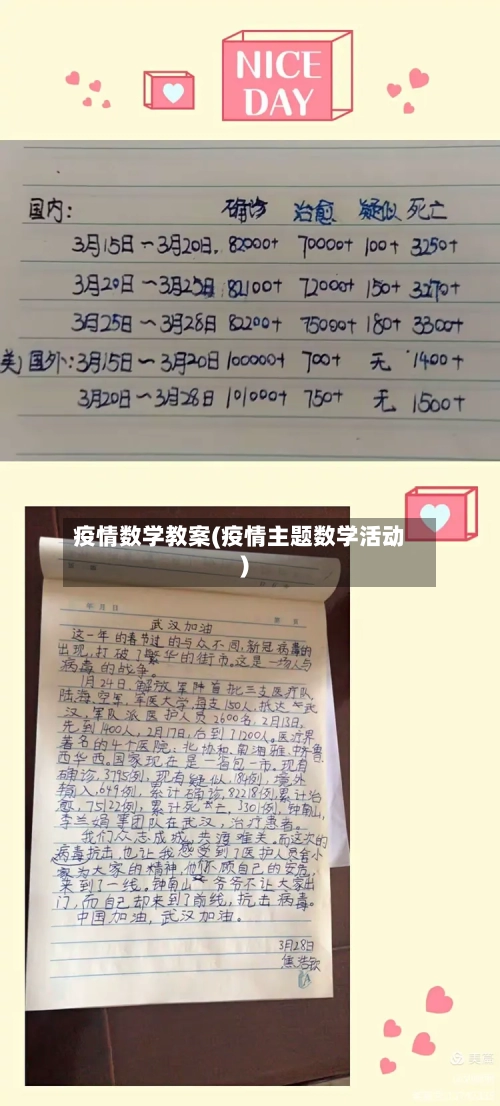 NICE
DAY
国内: 确诊 治愈 疑似 死亡
3月15日~3月20日. 82000+ 70000+ 100+ 3250+
3月20日~3月25日: 82100+ 72000+ 150+ 3270+
3月25日~3月28日 82200+ 75000+ 180+ 3300+
美)国外:3月15日~3月20日 100000+ 700+ 无 1400+
3月20日~3月28日 101000+ 750+ 无 1500+
疫情数学教案(疫情主题数学活动
)
年 月 日
武汉加油
这一年的春节过的与众不同,新冠病毒的
出现,打破了繁华的街市。这是一场人与
病毒的战争。
1月24日,解放军阵首批三支医疗队,
陆、海、空军,军医大学,每支150人,抵达武
汉,军队派医护人员2600名,2月13日,
先到1400人,2月17日,后到了1200人。医疗界
著名的4个医院:北协和、南湘雅、中齐鲁、
西华西。国家现在是一省包一市。现有
确诊,3795例,现有疑似,184例,境外
输入,649例,累计确诊,82218例,累计治
愈,75122例,累计死亡,3301例。钟南山,
李兰娟率团队在武汉,治疗患者。
我们众志成城,共渡难关。而这次的
病毒抗击,也让我感受到了医护人员舍小
家为大家的精神,他们不顾自己的安危,
来到了一线。钟南山爷爷不让大家出
门,而自己却来到了前线,抗击病毒。
中国加油,武汉加油。
3月28日
焦浩钦
美篇